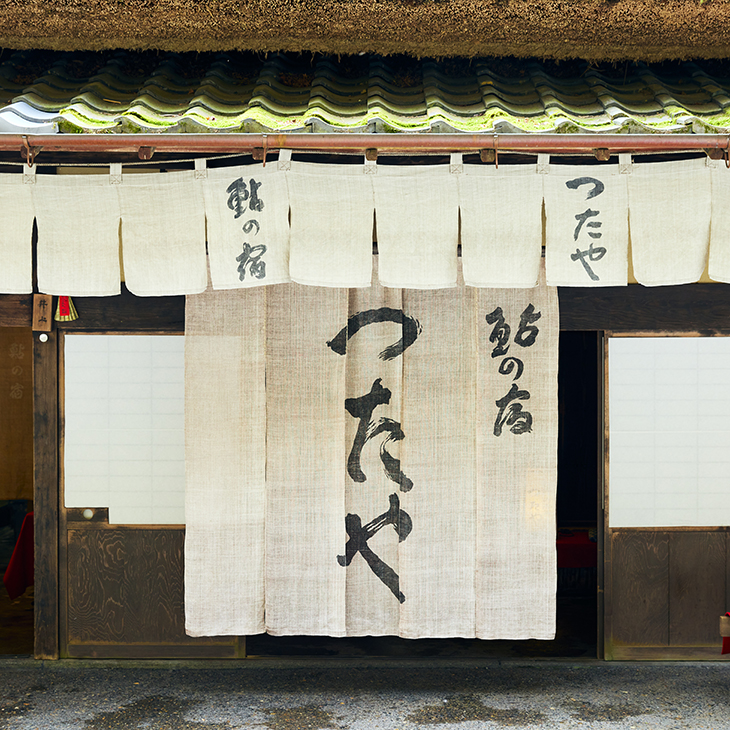 鮎の宿
つたや
鮎の宿
つたや
鮎の宿